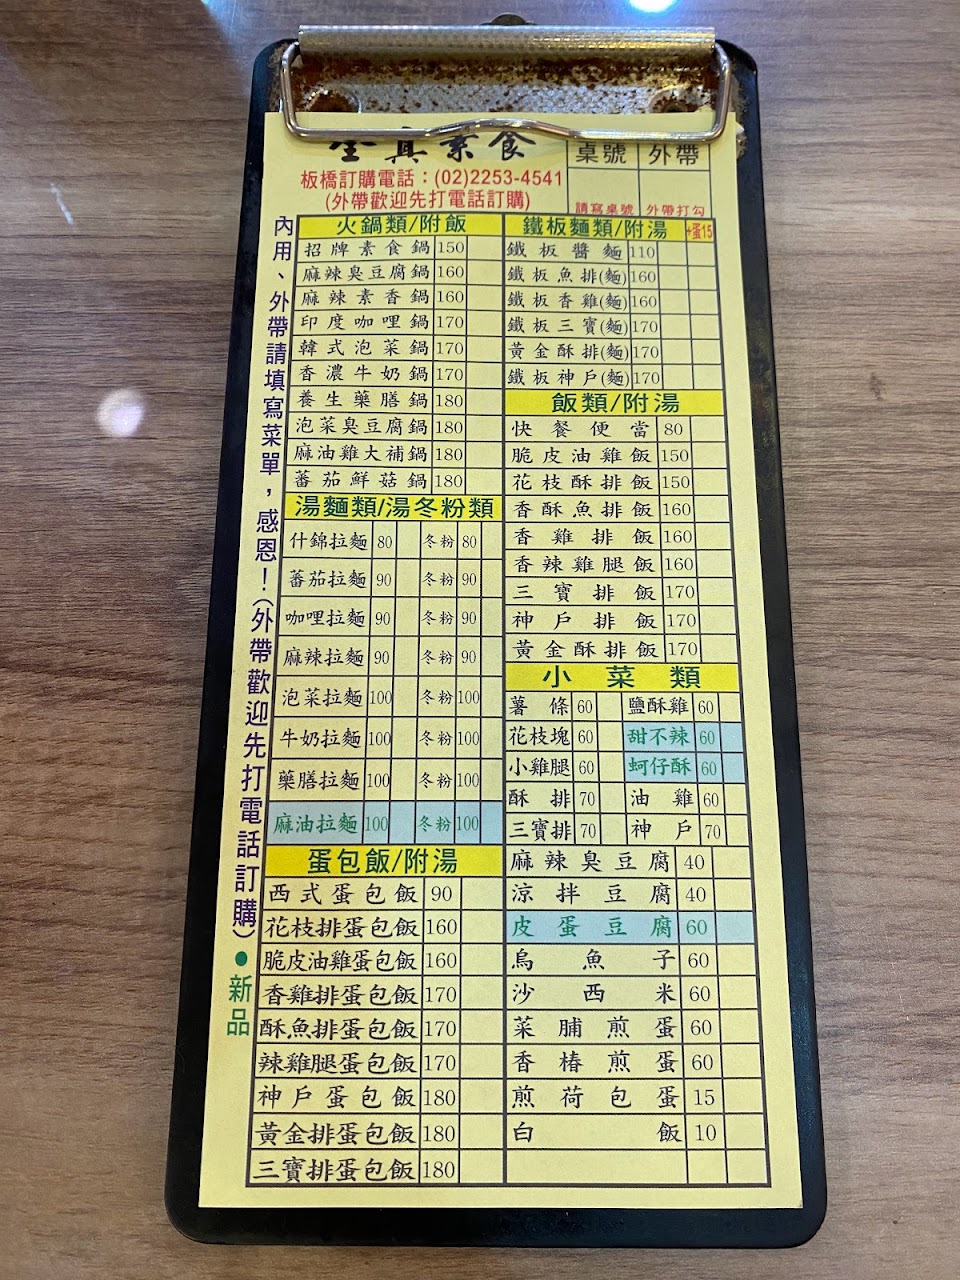 全真素食
桌號 外帶
板橋訂購電話：(02)2253-4541
(外帶歡迎先打電話訂購)
請寫桌號 外帶打勾
內用、外帶請填寫菜單，感恩！(外帶歡迎先打電話訂購)●新品
火鍋類/附飯
招牌素食鍋 150
麻辣臭豆腐鍋 160
麻辣素香鍋 160
印度咖哩鍋 170
韓式泡菜鍋 170
香濃牛奶鍋 170
養生藥膳鍋 180
泡菜臭豆腐鍋 180
麻油雞大補鍋 180
蕃茄鮮菇鍋 180
湯麵類/湯冬粉類
什錦拉麵 80 冬粉 80
蕃茄拉麵 90 冬粉 90
咖哩拉麵 90 冬粉 90
麻辣拉麵 90 冬粉 90
泡菜拉麵 100 冬粉 100
牛奶拉麵 100 冬粉 100
藥膳拉麵 100 冬粉 100
麻油拉麵 100 冬粉 100
蛋包飯/附湯
西式蛋包飯 90
花枝排蛋包飯 160
脆皮油雞蛋包飯 160
香雞排蛋包飯 170
酥魚排蛋包飯 170
辣雞腿蛋包飯 170
神戶蛋包飯 180
黃金排蛋包飯 180
三寶排蛋包飯 180
鐵板麵類/附湯 +蛋15
鐵板醬麵 110
鐵板魚排(麵) 160
鐵板香雞(麵) 160
鐵板三寶(麵) 170
黃金酥排(麵) 170
鐵板神戶(麵) 170
飯類/附湯
快餐便當 80
脆皮油雞飯 150
花枝酥排飯 150
香酥魚排飯 160
香雞排飯 160
香辣雞腿飯 160
三寶排飯 170
神戶排飯 170
黃金酥排飯 170
小菜類
薯條 60 鹽酥雞 60
花枝塊 60 甜不辣 60
小雞腿 60 蚵仔酥 60
酥排 70 油雞 60
三寶排 70 神戶 70
麻辣臭豆腐 40
涼拌豆腐 40
皮蛋豆腐 60
烏魚子 60
沙西米 60
菜脯煎蛋 60
香椿煎蛋 60
煎荷包蛋 15
白飯 10